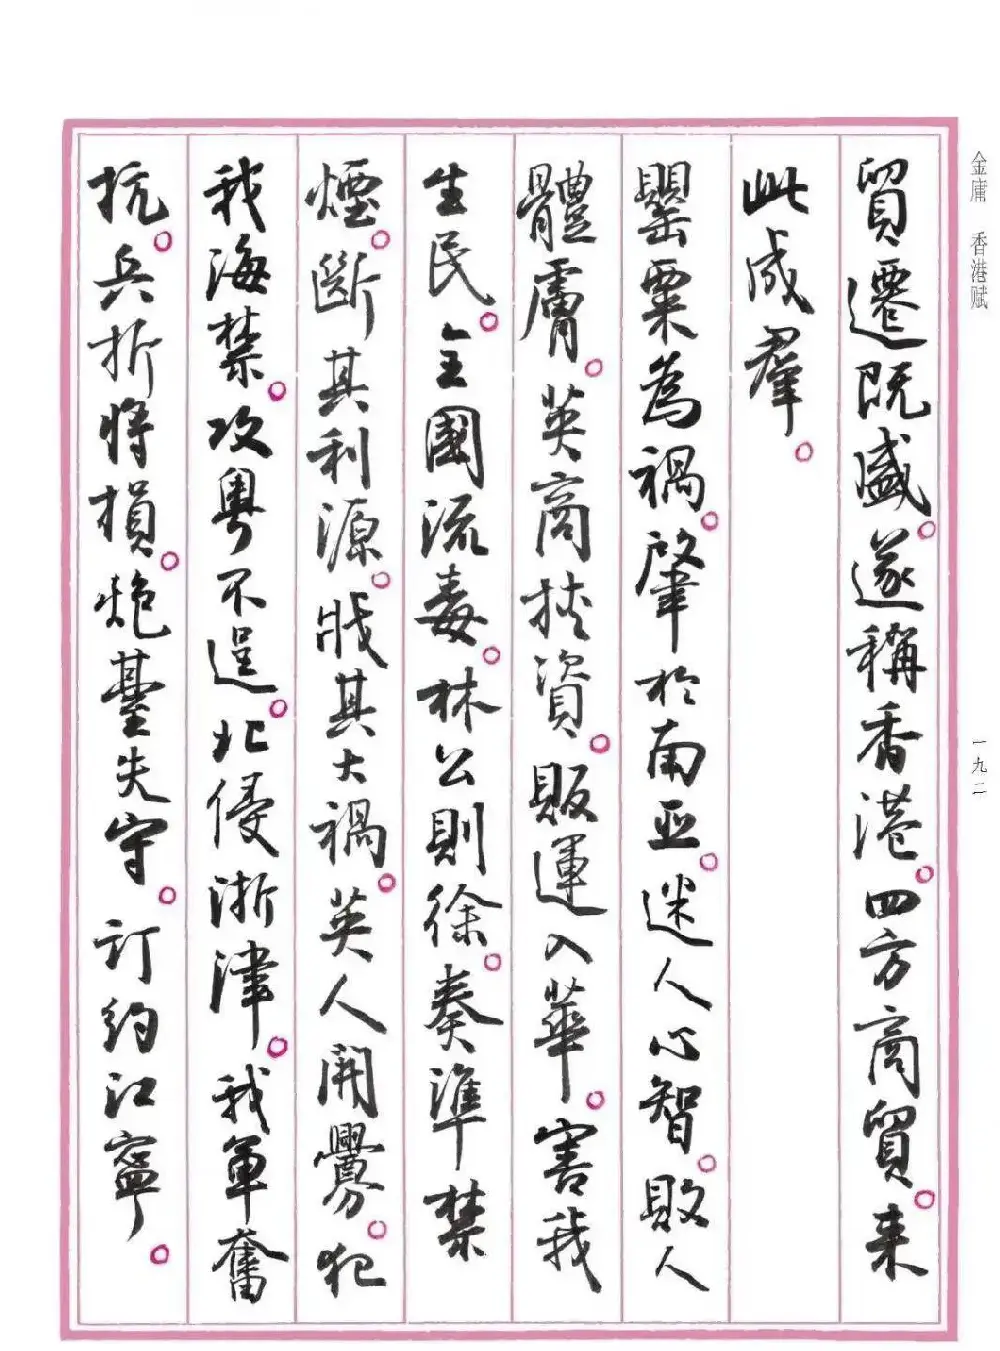 金庸 香港赋
一九二
貿遷既盛。遂稱香港。四方商貿。来
此成羣。
罌粟為禍。肇於南亞。迷人心智。敗人
體膚。英商挾資。販運入華。害我
生民。全國流毒。林公則徐。奏準禁
煙。斷其利源。戕其大禍。英人開釁。犯
我海禁。攻粵不逞。北侵浙津。我軍奮
抗。兵折将損。炮臺失守。訂約江寧。